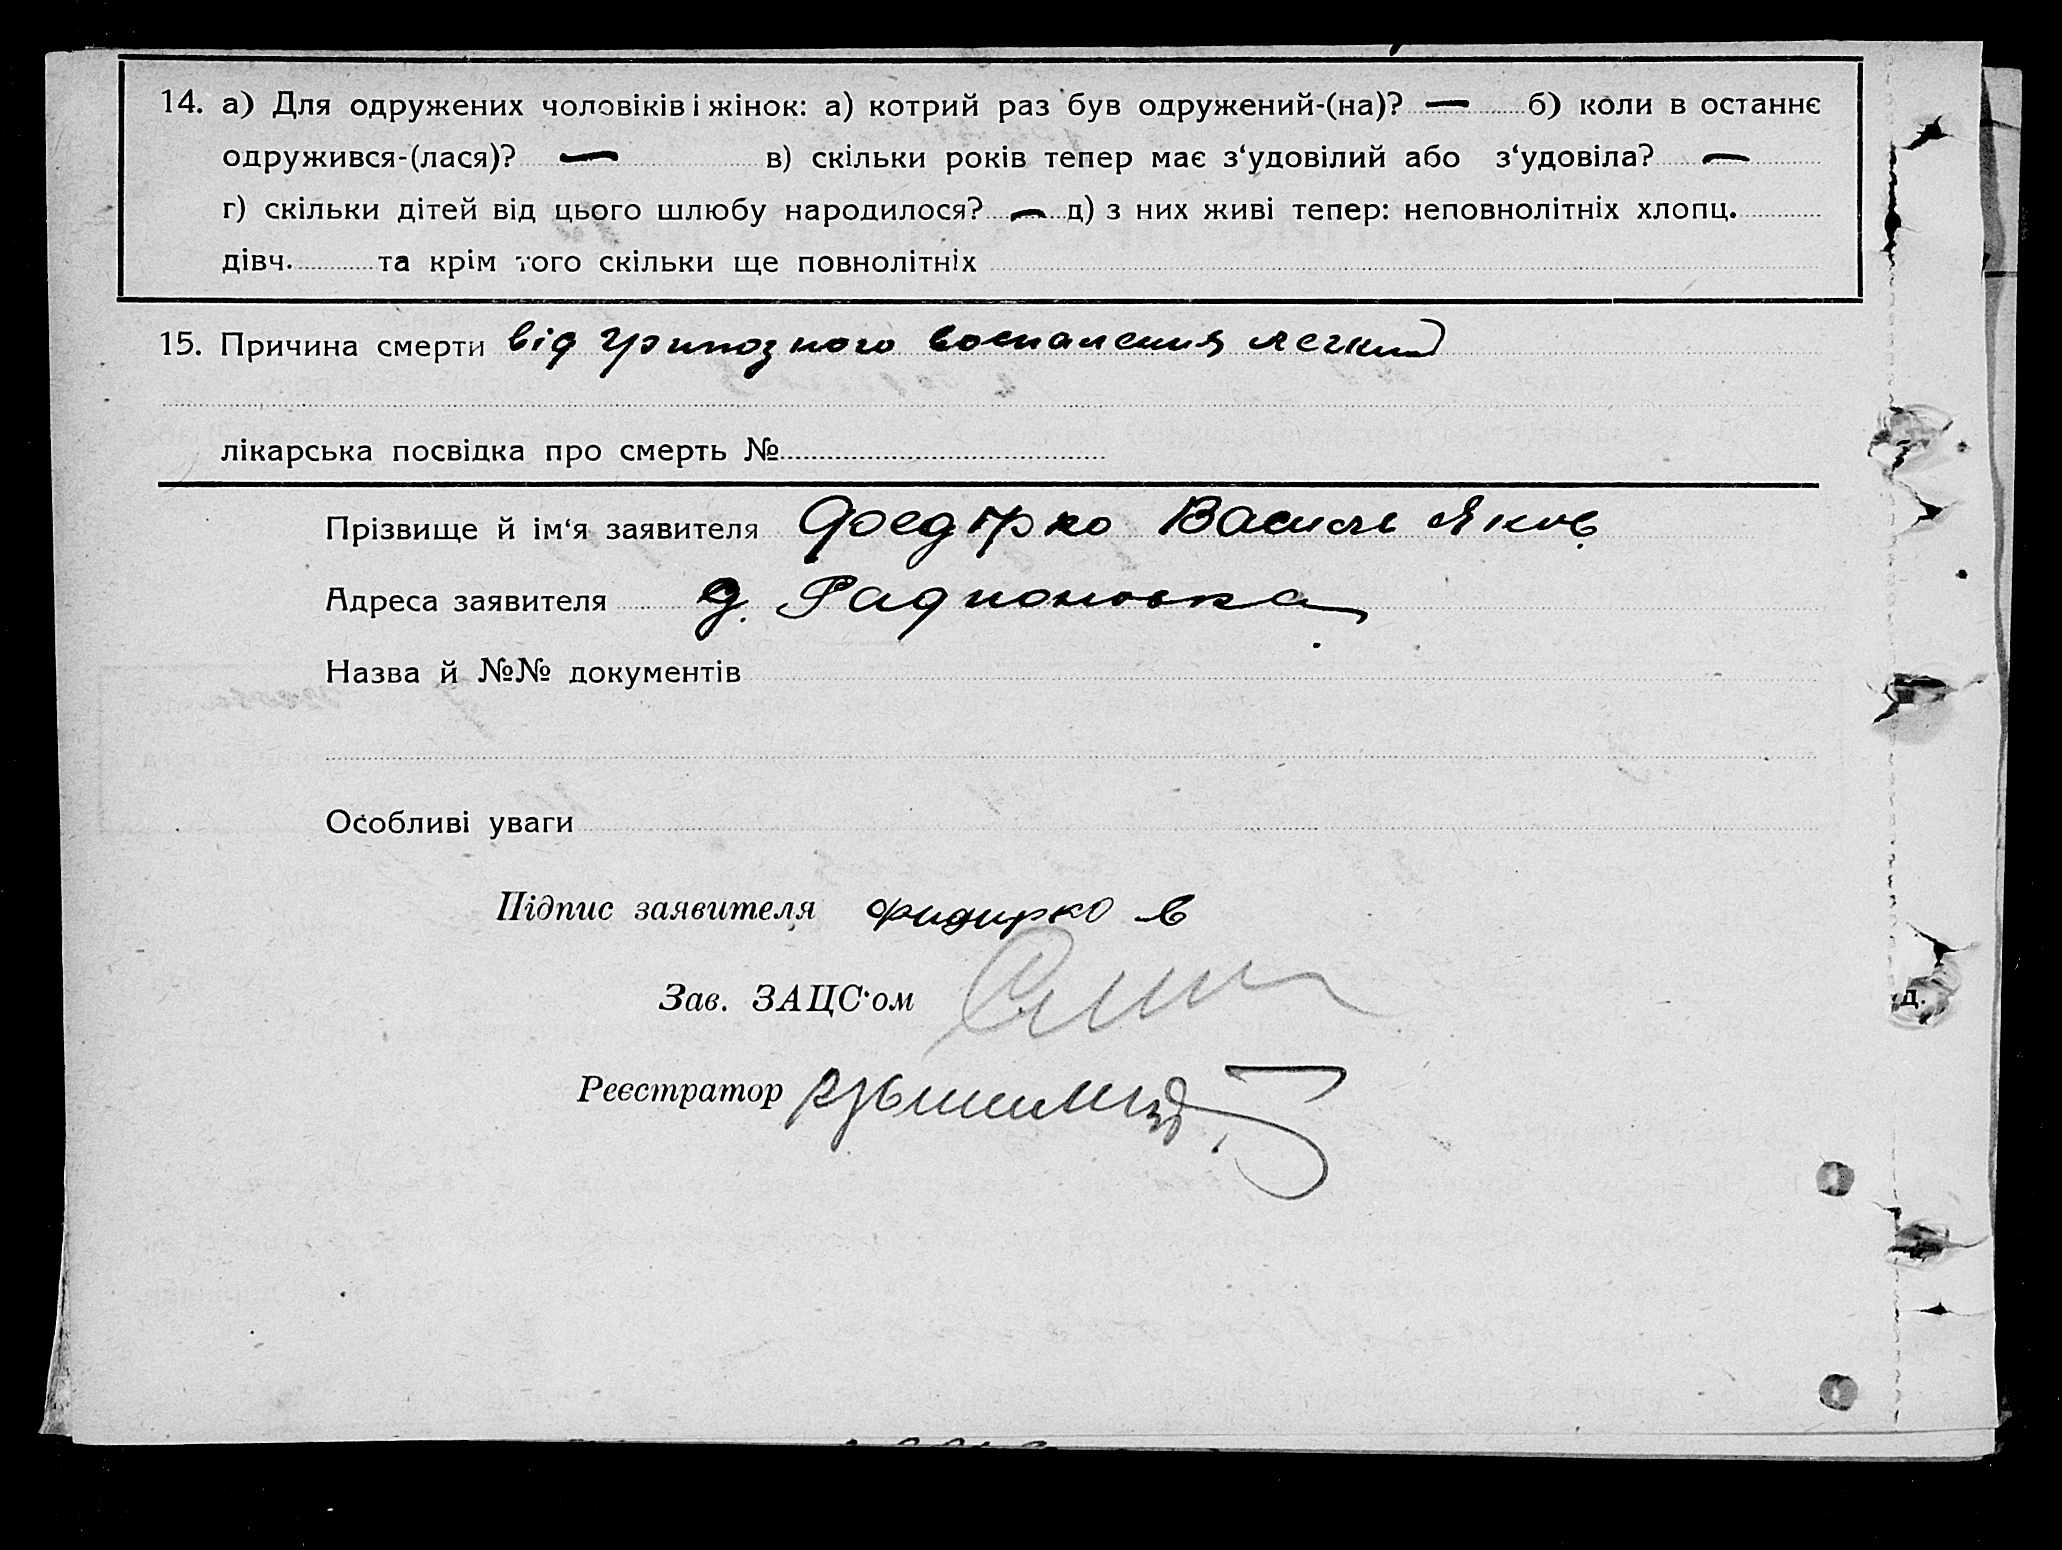 14. а) Для одружених чоловіків і жінок: а) котрий раз був одружений-(на)? — б) коли в останнє
одружився-(лася)? — в) скільки років тепер має з‘удовілий або з‘удовіла? —
г) скільки дітей від цього шлюбу народилося? — д) з них живі тепер: неповнолітніх хлопц.
дівч. та крім того скільки ще повнолітніх
15. Причина смерти від грипозного воспаления легких
лікарська посвідка про смерть №
Прізвище й ім‘я заявителя Федірко Василь Яков
Адреса заявителя д. Радионовка
Назва й №№ документів
Особливі уваги
Підпис заявителя Фидирко В
Зав. ЗАЦС‘ом
д.
Реєстратор